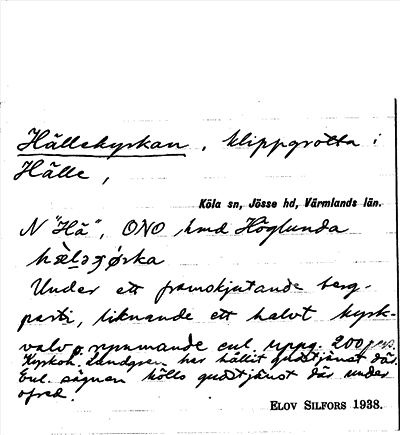 Hällekyrkan, klippgrotta i
Hälle,
Köla sn, Jösse hd, Värmlands län.
N "Hä", ONO hmd Höglunda
Under ett framskjutande berg-
parti, liknande ett halvt kyrk-
valv o. rymmande enl. uppg. 200 pers.
Kyrkoh. Landgren har hållit gudstjänst där.
Enl. sägnen hölls gudstjänst där under
ofred.
ELOV SILFORS 1938.